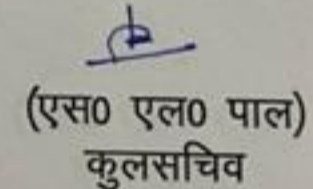 (एस0 एल0 पाल)
कुलसचिव